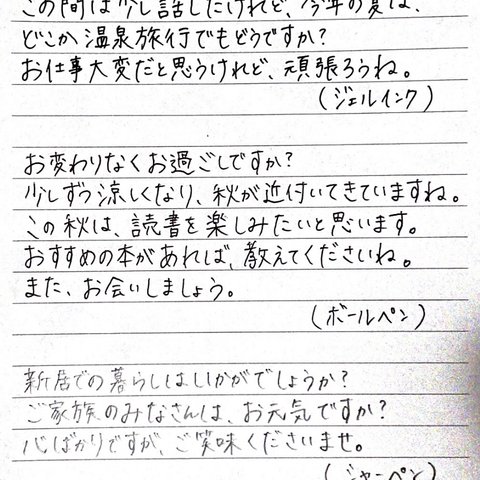 この間は少し話したけれど、今年の夏は、
どこか温泉旅行でもどうですか?
お仕事大変だと思うけれど、頑張ろうね。
(ジェルインク)
お変わりなくお過ごしですか?
少しずつ涼しくなり、秋が近付いてきていますね。
この秋は、読書を楽しみたいと思います。
おすすめの本があれば、教えてくださいね。
また、お会いしましょう。
(ボールペン)
新居での暮らしはいかがでしょうか?
ご家族のみなさんは、お元気ですか?
心ばかりですが、ご笑味くださいませ。
(シャーペン)